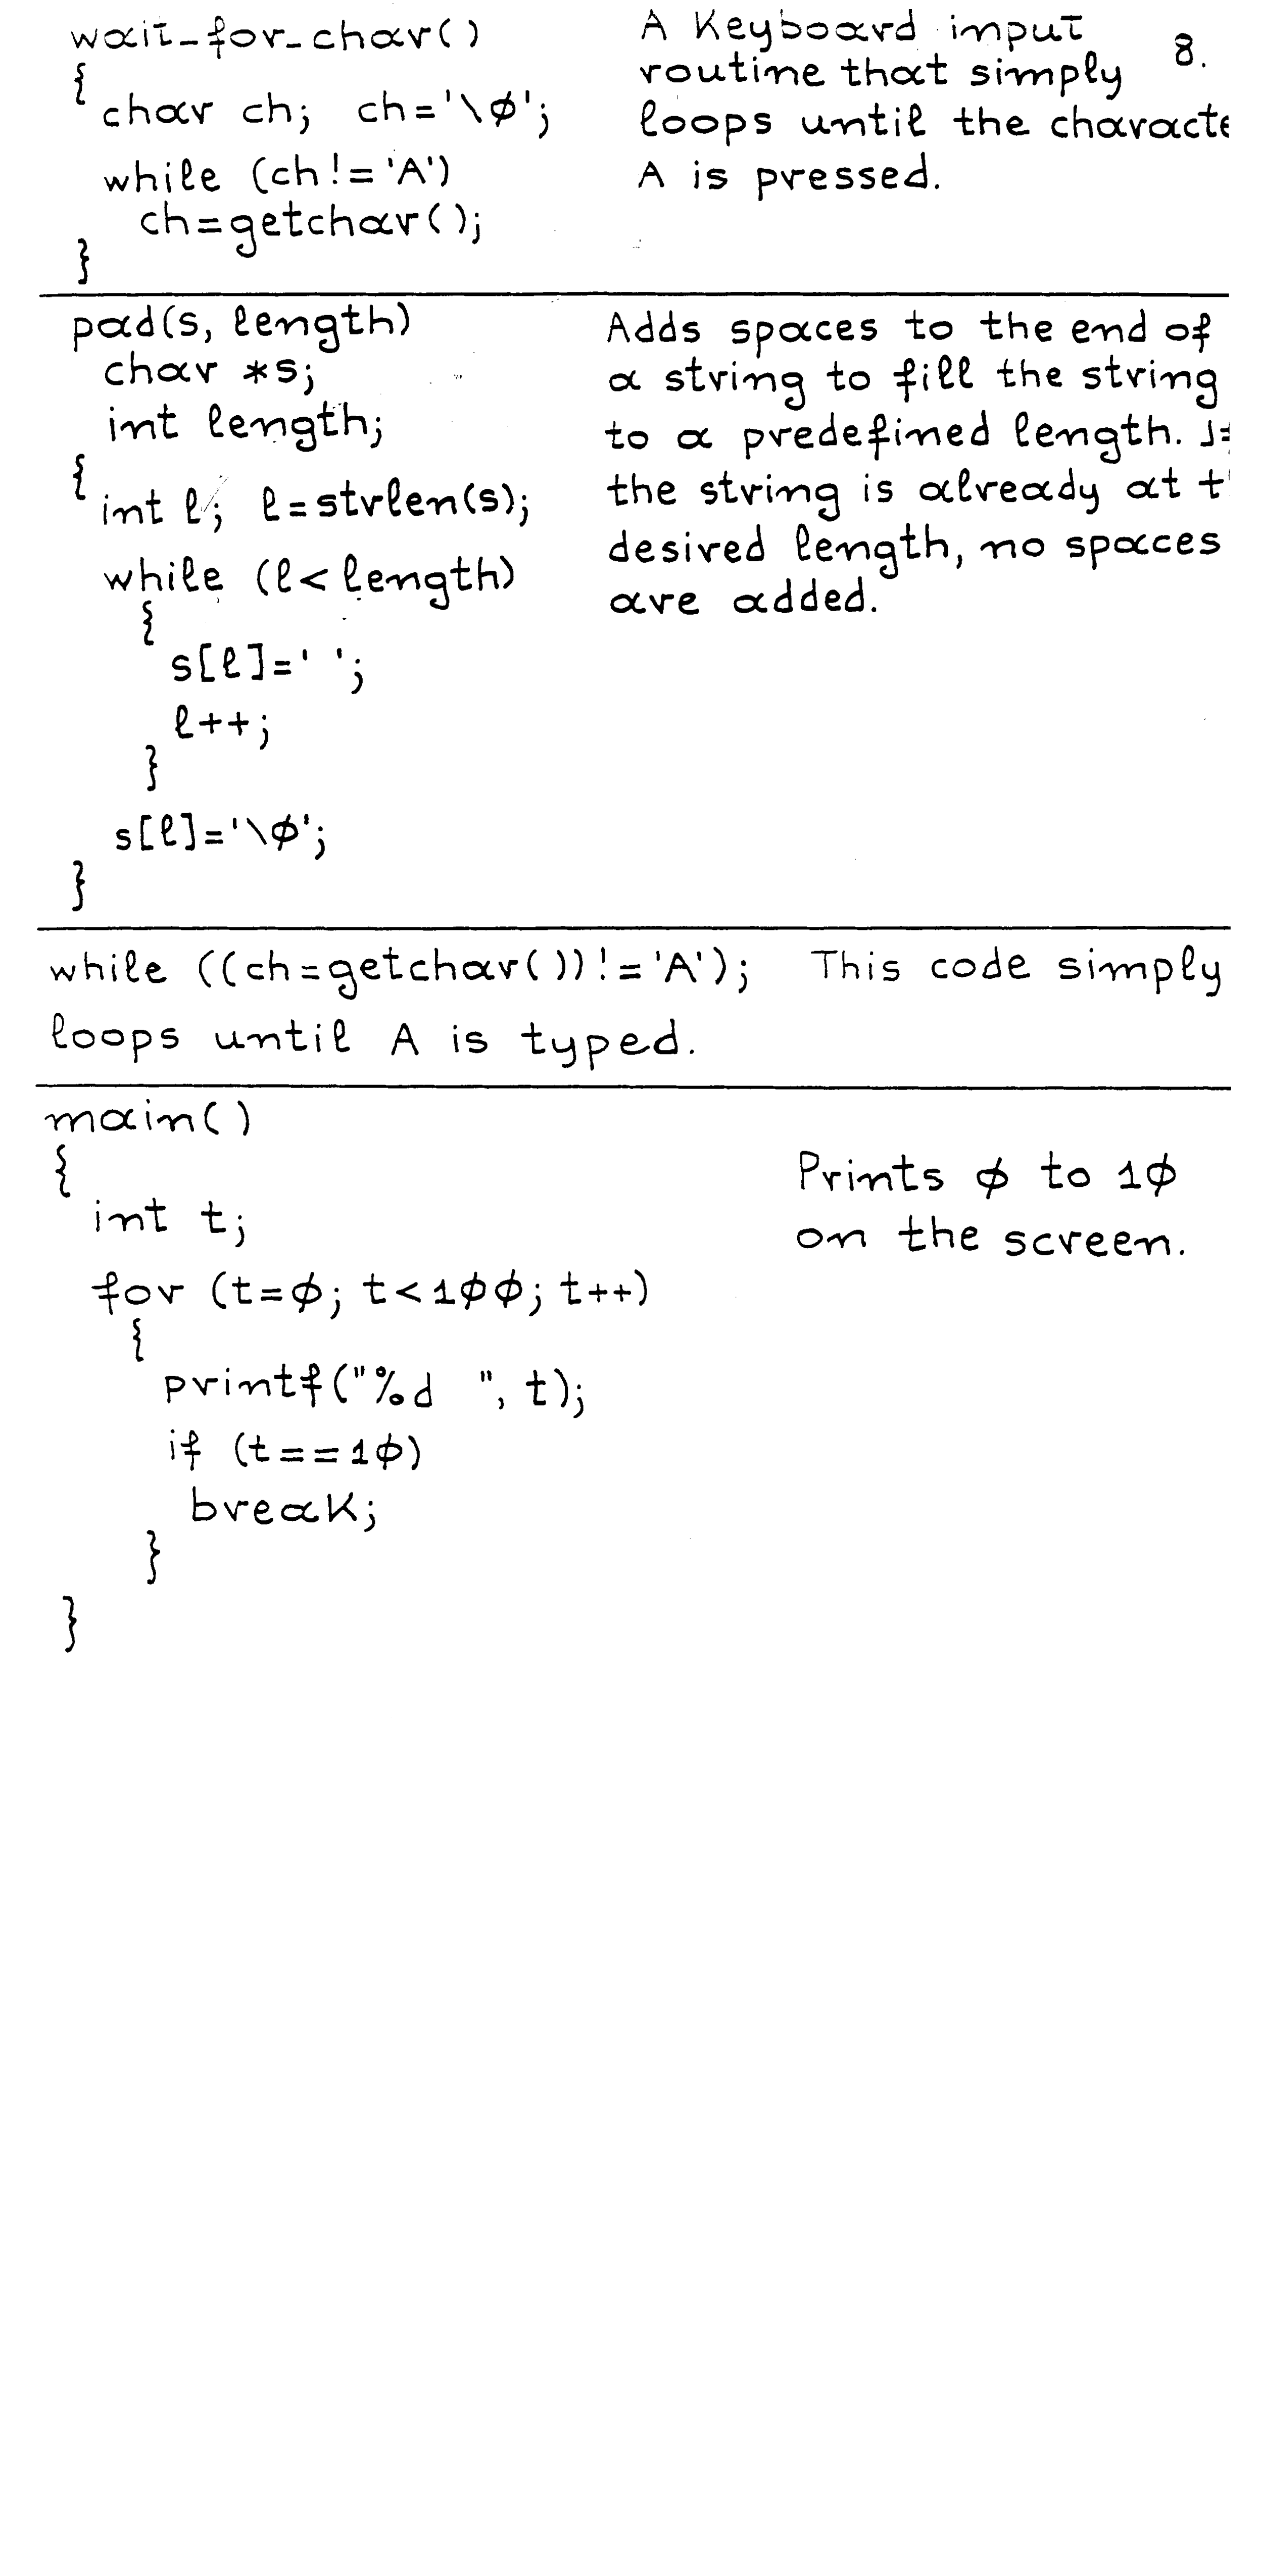 8.
wait_for_char()
{
char ch; ch='\φ';
while (ch!='A')
ch=getchar();
}
A Keyboard input
routine that simply
loops until the characte
A is pressed.
pad(s, length)
char *s;
int length;
{
int l; l=strlen(s);
while (l<length)
{
s[l]=' ';
l++;
}
s[l]='\φ';
}
Adds spaces to the end of
a string to fill the string
to a predefined length.
the string is already at
desired length, no spaces
are added.
while ((ch=getchar())!='A'); This code simply
loops until A is typed.
main()
{
int t;
for (t=φ; t<1φφ; t++)
{
printf("%d ", t);
if (t==1φ)
break;
}
}
Prints φ to 1φ
on the screen.